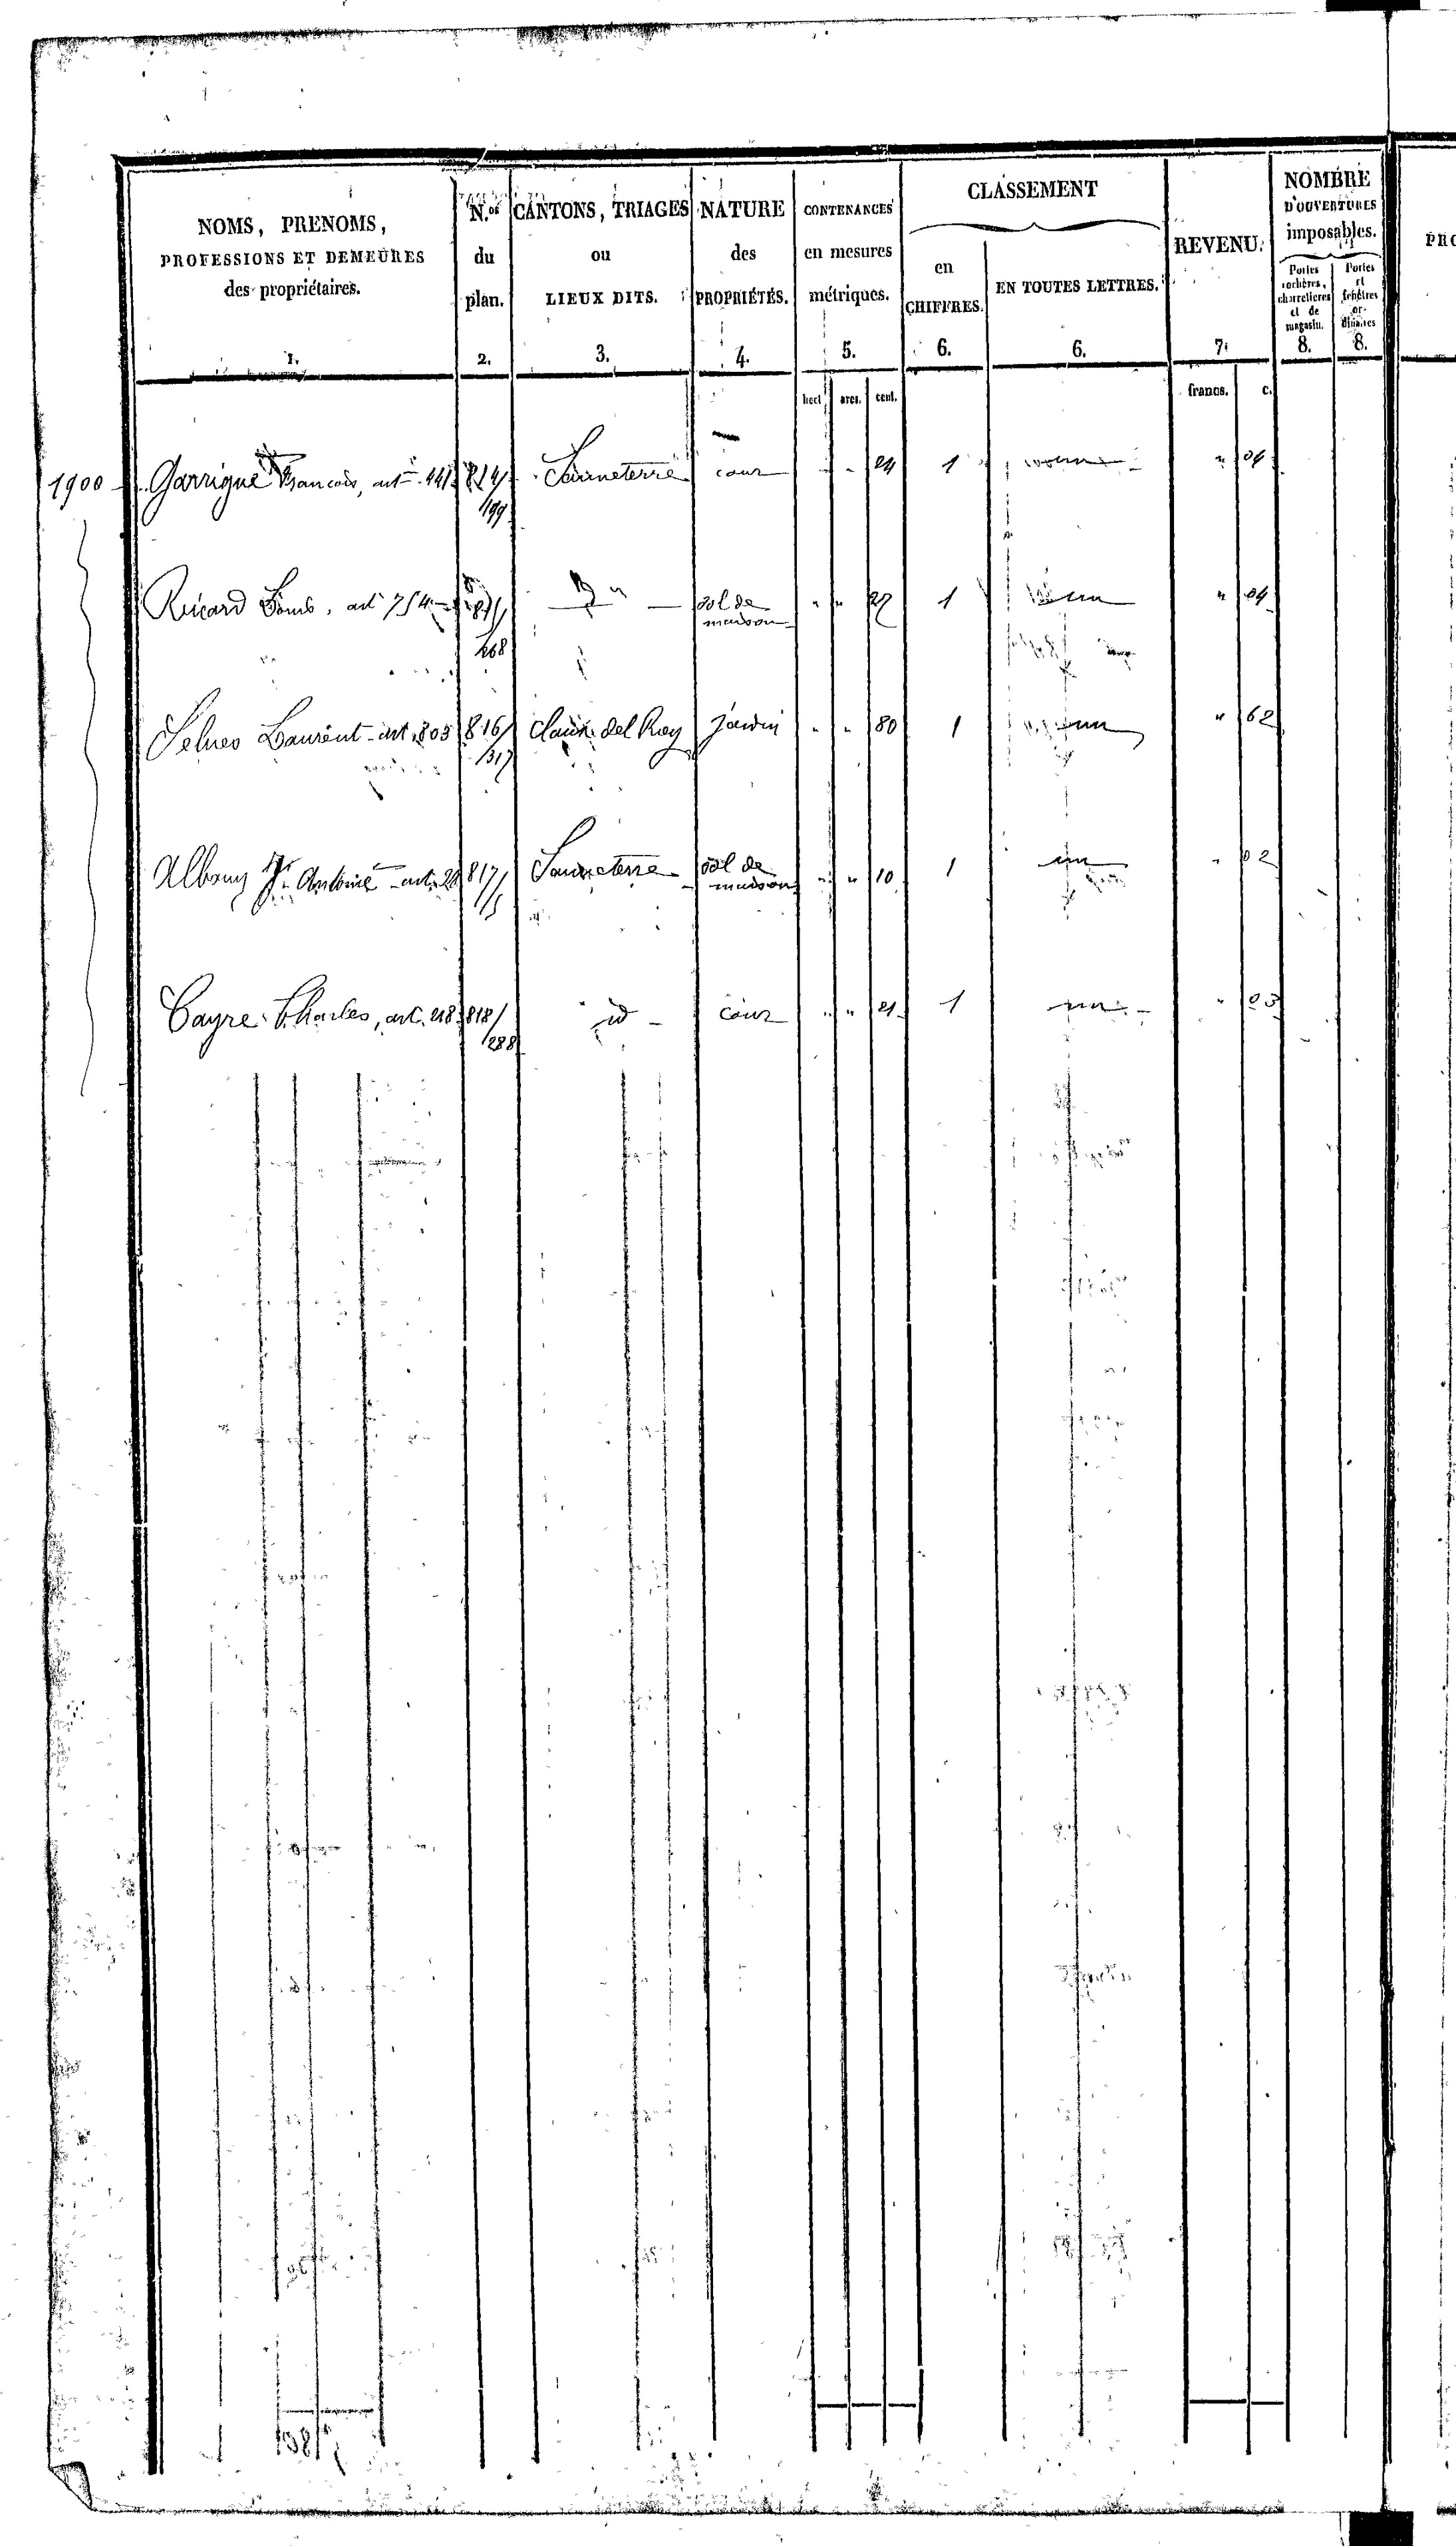 NOMS, PRENOMS,
PROFESSIONS ET DEMEURES
des propriétaires.
1.
N.os
du
plan.
2.
CANTONS, TRIAGES
ou
LIEUX DITS.
3.
NATURE
des
PROPRIÉTÉS.
4.
CONTENANCES
en mesures
métriques.
5.
CLASSEMENT
en
CHIFFRES.
6.
EN TOUTES LETTRES.
6.
REVENU.
7.
NOMBRE
D'OUVERTURES
imposables.
Portes
cochères,
charretières
et de
magasin.
8.
Portes
et
fenêtres
or-
dinaires
8.
PRO
hect ares. cent. francs. c.
1900 Garrigue François, art 441 814/ Sauveterre cour " " 24 1 " 04
199
Ricard Louis, art 754 815/ D° sol de " " 27 1 un " 04
maison
268
Laurent art. 803 816/ Claux del Rey jardin " " 80 1 un " 62
317
Albouy Antoine art. 817/ Sauveterre sol de " " 10 1 un " 02
maison
Cayre Charles, art. 218 818/ id cour " " 21 1 un " 03
288